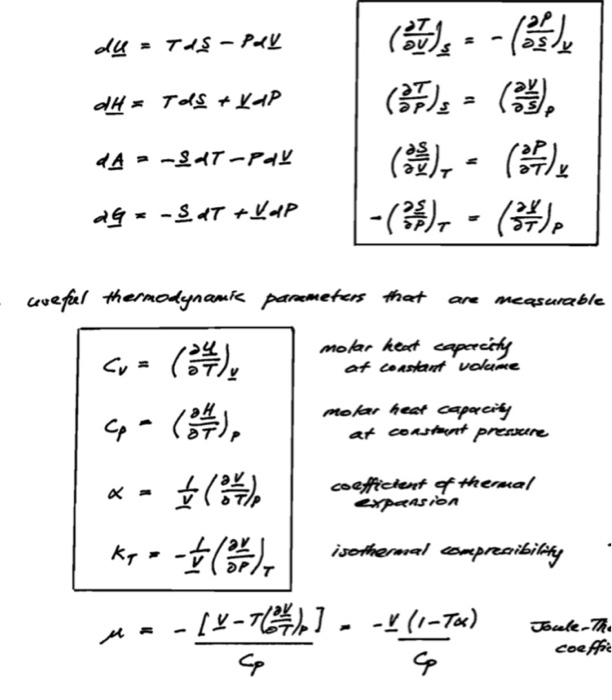 dU̲ = TdS̲ - PdV̲    (∂T/∂V̲)_S̲ = - (∂P/∂S̲)_V̲
dH̲ = TdS̲ + V̲dP    (∂T/∂P)_S̲ = (∂V̲/∂S̲)_P
dA̲ = -S̲dT - PdV̲    (∂S̲/∂V̲)_T = (∂P/∂T)_V̲
dG̲ = -S̲dT + V̲dP    -(∂S̲/∂P)_T = (∂V̲/∂T)_P
useful thermodynamic parameters that are measurable
C_V = (∂U̲/∂T)_V̲    molar heat capacity
at constant volume
C_P = (∂H̲/∂T)_P    molar heat capacity
at constant pressure
α = 1/V̲ (∂V̲/∂T)_P    coefficient of thermal
expansion
K_T = -1/V̲ (∂V̲/∂P)_T    isothermal compressibility
μ = - [V̲ - T(∂V̲/∂T)_P] / C_P = -V̲ (1 - Tα) / C_P    Joule-Tho
coeffic